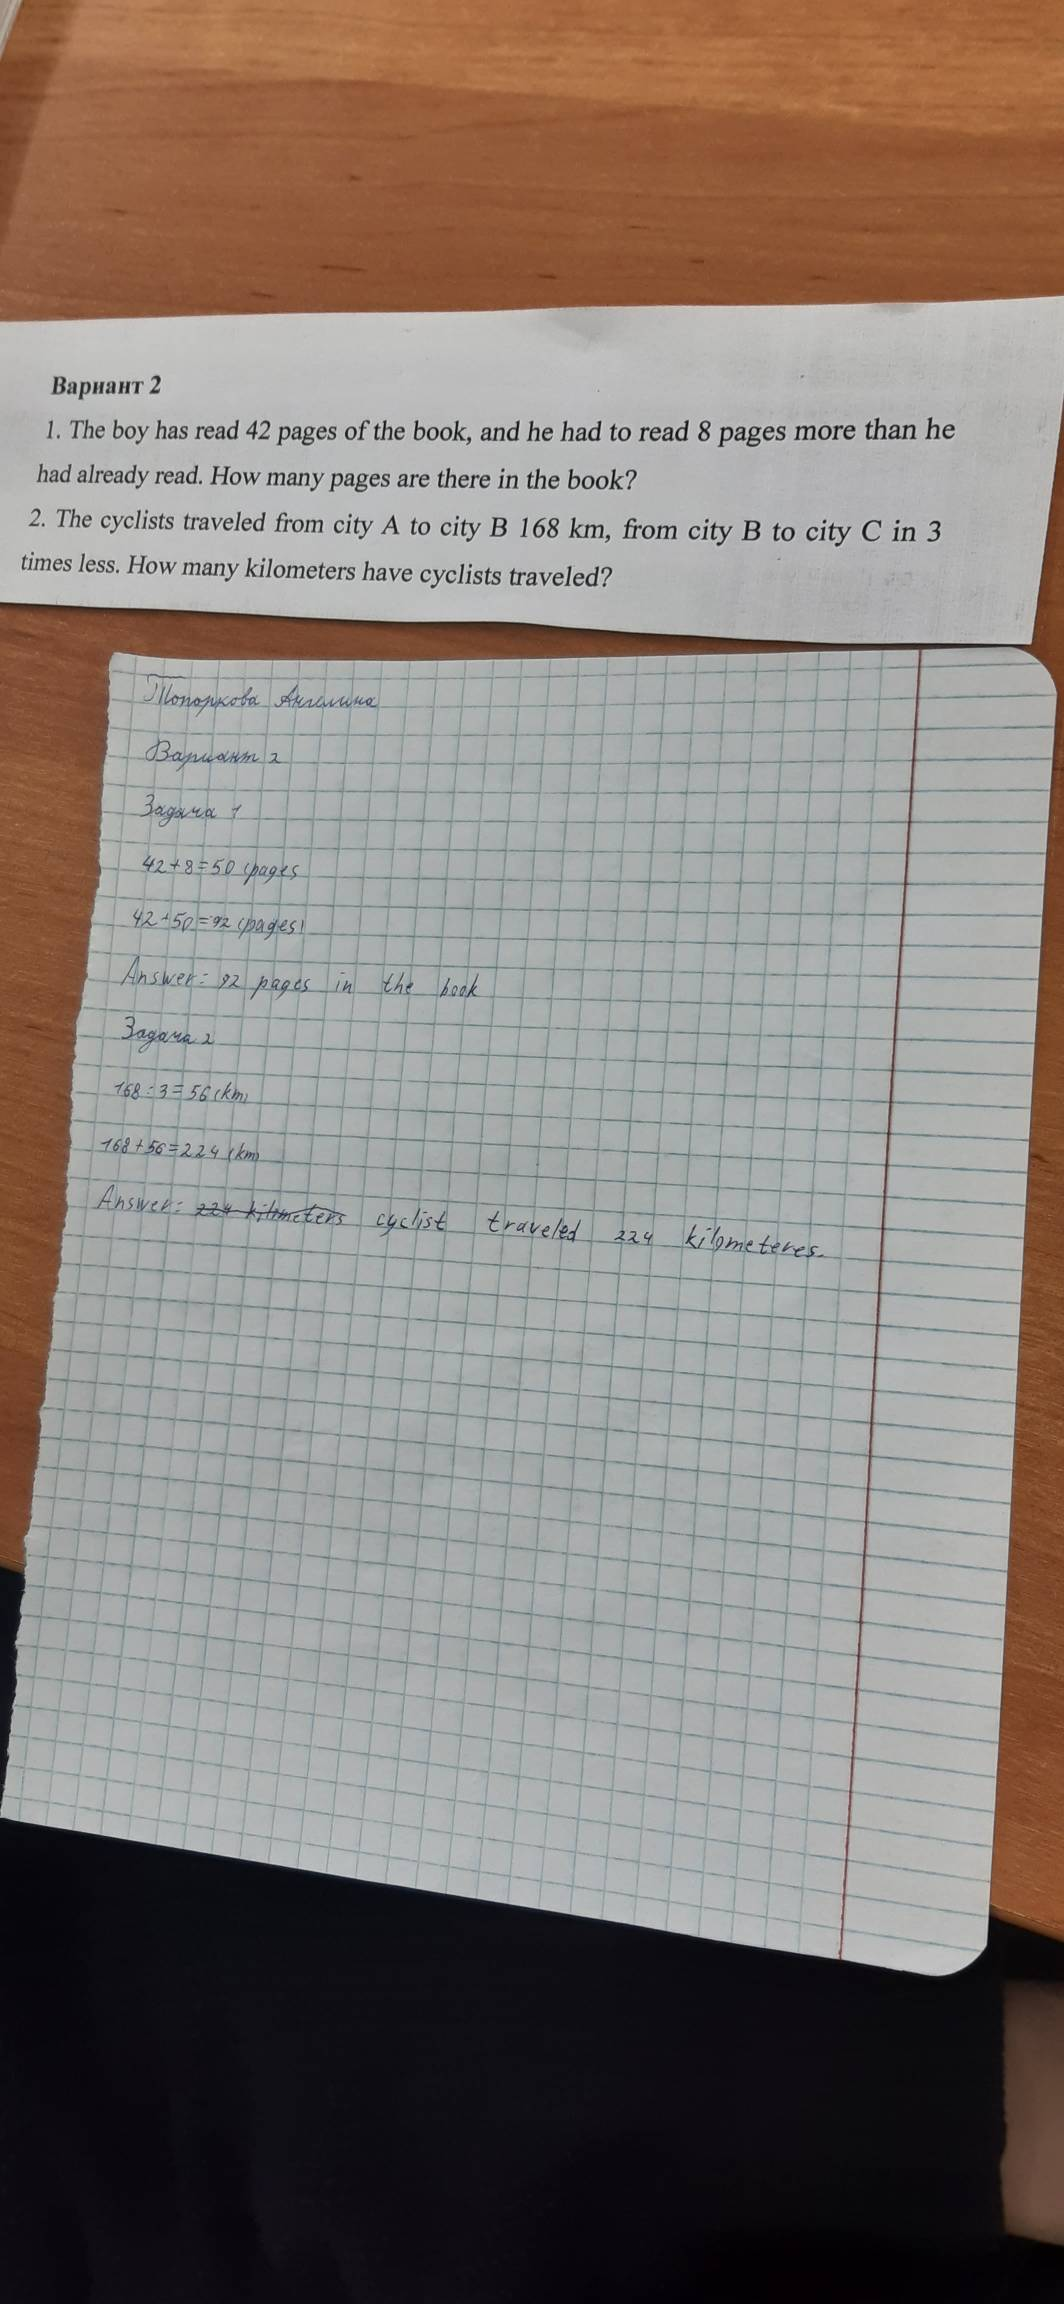 Вариант 2
1. The boy has read 42 pages of the book, and he had to read 8 pages more than he
had already read. How many pages are there in the book?
2. The cyclists traveled from city A to city B 168 km, from city B to city C in 3
times less. How many kilometers have cyclists traveled?
Топоркова Ангелина
Вариант 2
Задача 1
42+8=50 (pages
42+50=92 (pages)
Answer: 92 pages in the book
Задача 2
168:3=56 (km)
168+56=224 (km)
Answer: 224 kilometers cyclist traveled 224 kilometeres.